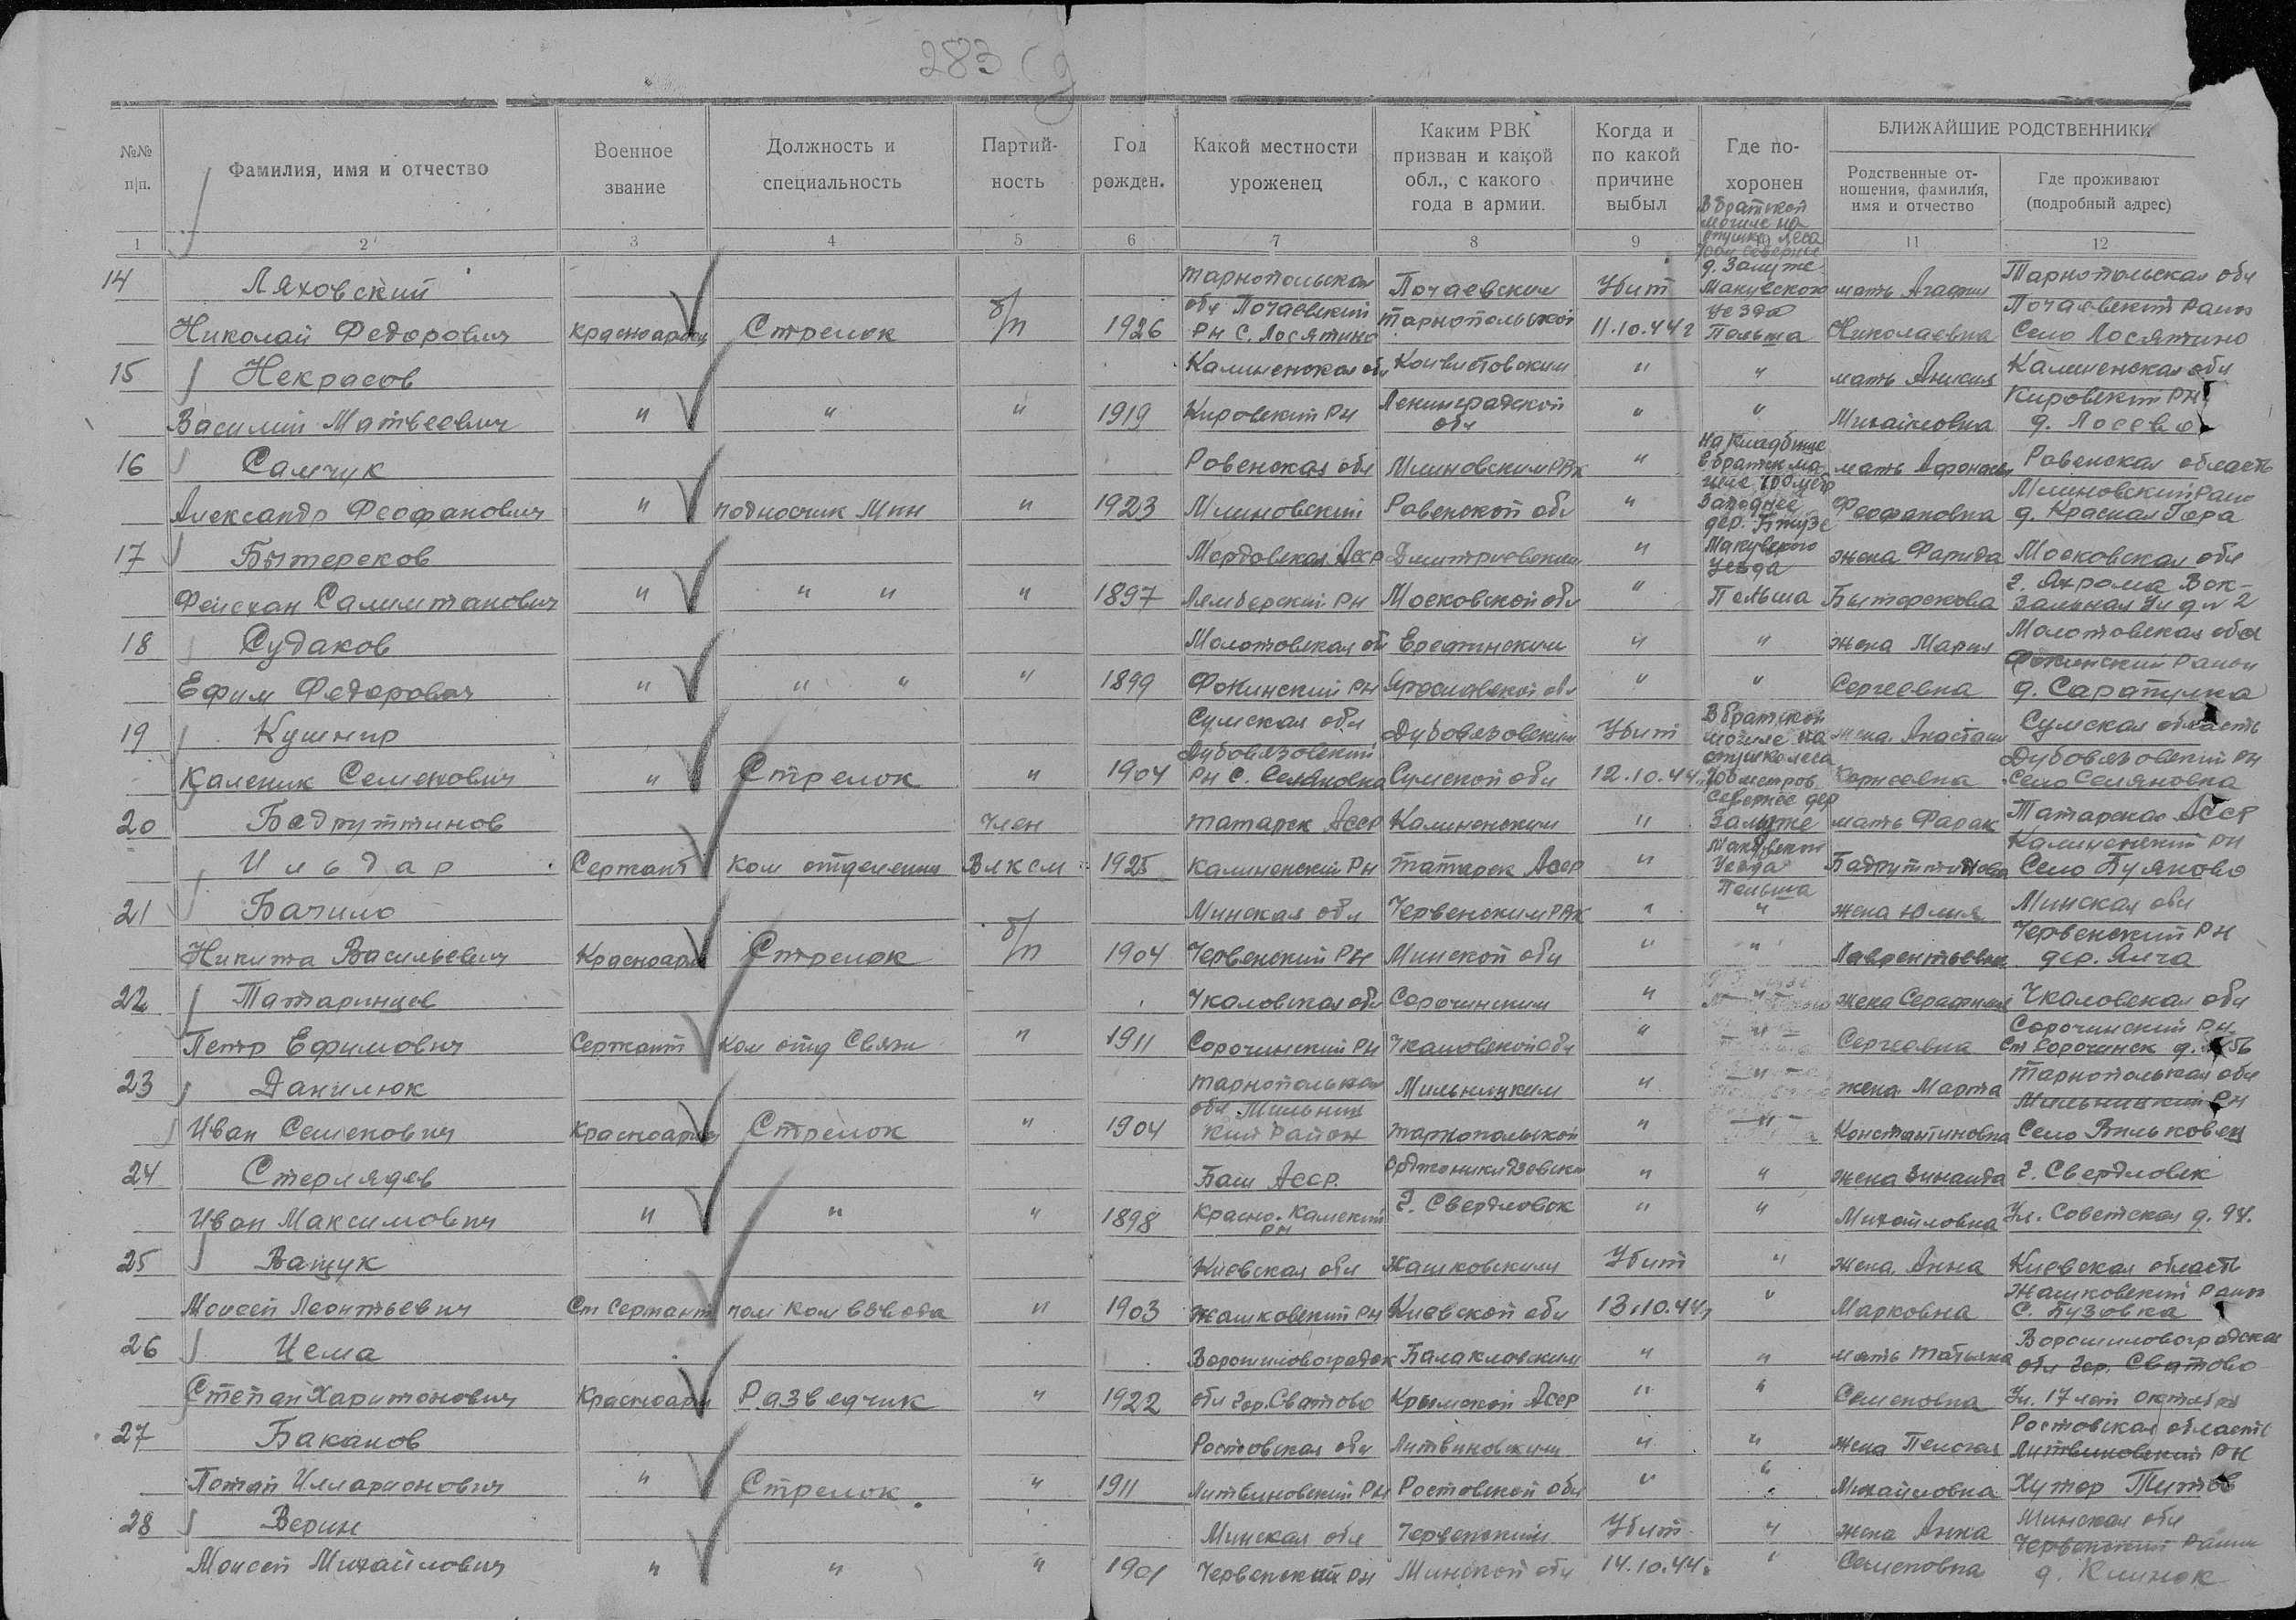 283 (9
№№ п|п.
Фамилия, имя и отчество
Военное звание
Должность и специальность
Партий-ность
Год рожден.
Какой местности уроженец
Каким РВК призван и какой обл., с какого года в армии.
Когда и по какой причине выбыл
Где по-хоронен
БЛИЖАЙШИЕ РОДСТВЕННИКИ
Родственные от-ношения, фамилия, имя и отчество
Где проживают (подробный адрес)
1 2 3 4 5 6 7 8 9 11 12
В братской
могиле на
опушке леса
северные
14 Ляховский Тарнопольская Почаевским Убит д. Залуже мать Агафия Тарнопольская обл
обл Почаевский Макувского Почаевский Район
Николай Федорович красноармец Стрелок б/п 1926 РН С. Лосятино Тарнопольской 11.10.44г уезда Польша Николаевна Село Лосятино
15 Некрасов Калининская обл Койвистовским " " мать Калининская обл
Василий Матвеевич " " " 1919 Кировский РН Ленинградской обл " " Михайловна Кировский РН
д. Лосево
16 Самчук Ровенская обл Млиновским РВК " На кладбище в братск мо мать Ровенская область
гиле 100 метр Млиновский Район
Александр Феофанович " подносчик Мин " 1923 Млиновский Ровенской обл " Западнее дер. Феофановна д. Красная Гора
17 Бытереков Мордовская Асср Дмитровским " Макувского уезда жена Фатида Московская обл
г. Яхрома Вок-
Фейсхан Салимтанович " " " " 1897 Лямберский РН Московской обл " Польша Бытерекова зальная Ул д № 2
18 Судаков Молотовская об " " жена Мария Молотовская обл
Фокинский Район
Ефим Федорович " " " " 1899 Фокинский РН Ярославской обл " " Сергеевна д. Сарапулка
19 Кушнир Сумская обл Дубовязовским Убит В братской могиле на жена Анастасия Сумская область
Дубовязовский опушке леса Дубовязовский РН
Каленик Семенович " Стрелок " 1904 РН С. Селяновка Сумской обл 12.10.44г метров Корнеевна Село Селяновка
севернее дер
20 Бадрутинов член Татарск Асср Калининским " Залуже мать Фарак Татарская АССР
Макувского Калининский РН
Ильдар Сержант ком отделения ВЛКСМ 1925 Калининский РН Татарск Асср " Уезда Бадрутинова Село Буляково
Польша
21 Бачило Минская обл Червенским РВК " " жена Юлия Минская обл
Червенский РН
Никита Васильевич Красноарм Стрелок б/п 1904 Червенский РН Минской обл " " Лаврентьевна дер. Ляча
22 Татаринцев Чкаловская обл Сорочинским " " жена Серафима Чкаловская обл
Сорочинский РН
Петр Ефимович Сержант ком отд Связи " 1911 Сорочинский РН Чкаловской обл " " Сергеевна Ст Сорочинск д. № 56
23 Данилюк Тарнопольская Мильницким " " жена Марта Тарнопольская обл
обл Мильниц Мильницкий РН
Иван Семенович Красноарм Стрелок " 1904 кий Район Тарнопольской " " Константиновна Село Вильковец
24 Стерлядев Баш Асср. Орджоникидзевским " " жена Зинаида г. Свердловск
Иван Максимович " " " 1898 Красно-Камский РН г. Свердловск " " Михайловна Ул. Советская д. 94.
25 Ващук Киевская обл Жашковским Убит " жена Анна Киевская область
Жашковский Район
Моисей Леонтьевич Ст Сержант пом ком взвода " 1903 Жашковский РН Киевской обл 13.10.44г " Марковна С. Бузовка
26 Цема Ворошиловоградск Балакловским " " мать Татьяна Ворошиловоградская
обл гор. Сватово
Степан Харитонович Красноарм Разведчик " 1922 обл гор. Сватово Крымской Асср " " Семеновна Ул. 17 лет октября
27 Баканов Ростовская обл Литвиновским " " жена Пелогая Ростовская область
Литвиновский РН
Потап Илларионович " Стрелок " 1911 Литвиновский РН Ростовской обл " " Михайловна Хутор Титов
28 Верин Минская обл Червенским Убит " жена Анна Минская обл
Червенский Район
Моисей Михайлович " " " 1901 Червенский РН Минской обл 14.10.44г " Семеновна д. Клинок